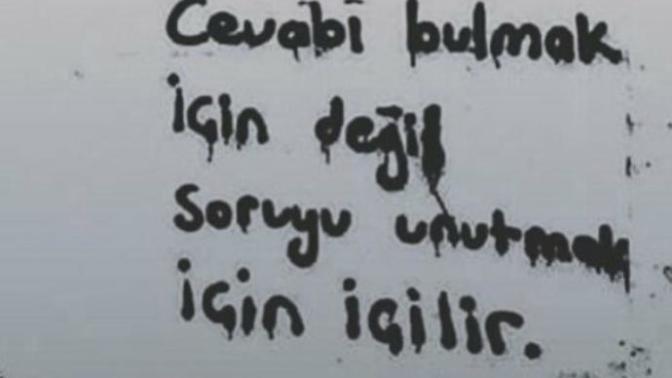 Cevabı bulmak
için değil
Soruyu unutmak
için içilir.